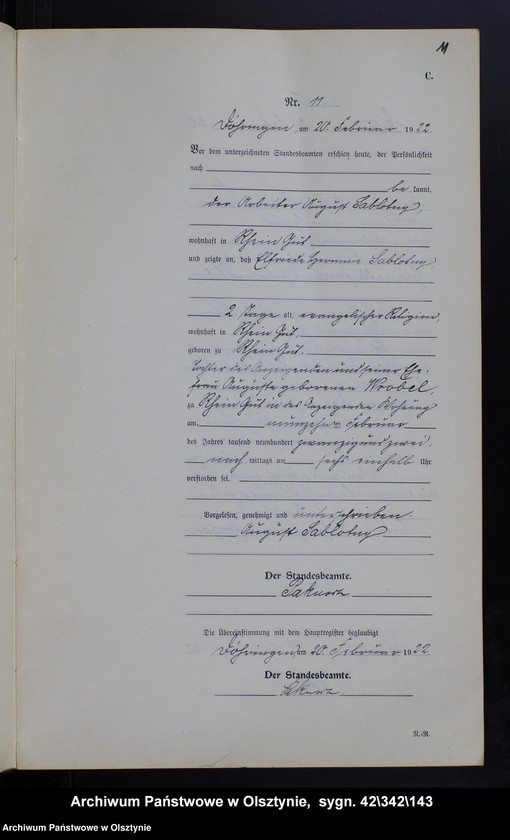 11
C.
Nr. 11
Döhringen, am 20. Februar 1922.
Vor dem unterzeichneten Standesbeamten erschien heute, der Persönlichkeit
nach
be kannt,
der Arbeiter August Sablotny,
wohnhaft in Rhein Gut
und zeigte an, daß Elfriede Hermine Sablotny
2 Tage alt, evangelischer Religion,
wohnhaft in Rhein Gut,
geboren zu Rhein Gut,
Tochter des Anzeigenden und seiner Ehe-
frau Auguste geborenen Wrobel,
zu Rhein Gut in des Anzeigenden Wohnung
am neunzehn Februar
des Jahres tausend neunhundert zwanzig und zwei,
nach mittags um sechs einhalb Uhr
verstorben sei.
Vorgelesen, genehmigt und unterschrieben
August Sablotny
Der Standesbeamte.
Die Übereinstimmung mit dem Hauptregister beglaubigt
Döhringen, am 20. Februar 1922
Der Standesbeamte.
Archiwum Państwowe w Olsztynie, sygn. 42\342\143
Archiwum Państwowe w Olsztynie